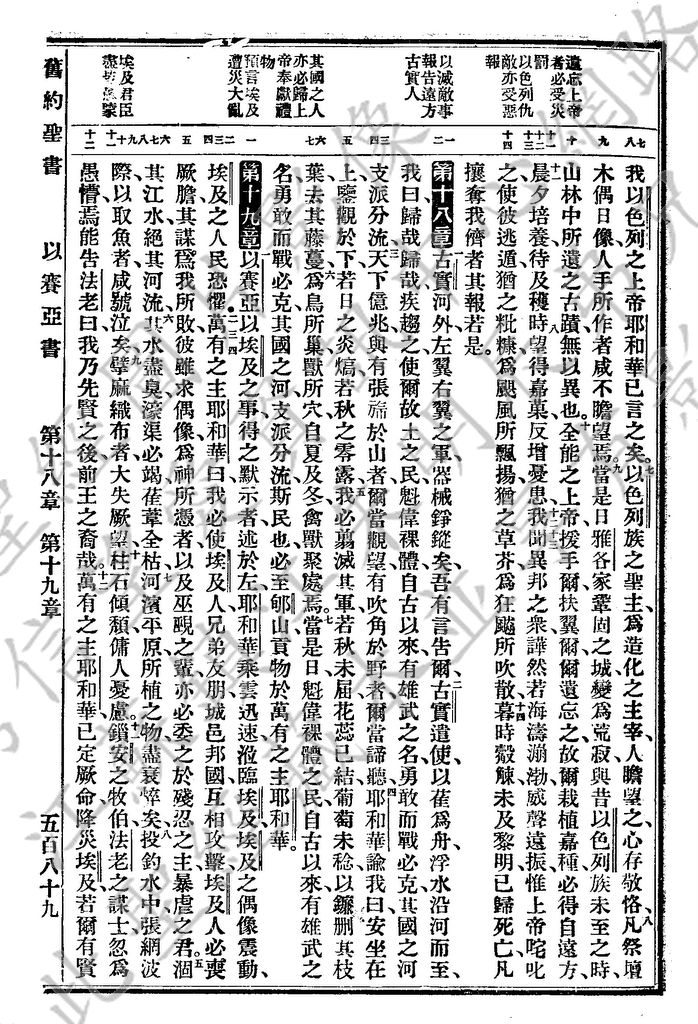 遺忘上帝
者必受災
罰
以色列仇
敵亦受惡
報
以滅敵事
報告遠方
古實人
其國之人
亦必歸上
帝奉獻禮
物
預言埃及
遭災大亂
埃及君臣
七八
九
十
十一
十二十三
十四
一二
三四
五
六七
一
二三四
五
六七八九十十一
十二
我以色列之上帝耶和華已言之矣以色列族之聖主爲造化之主宰人瞻望之心存敬恪凡祭壇
木偶日像人手所作者咸不瞻望焉當是日雅各家鞏固之城變爲荒寂與昔以色列族未至之時
山林中所遺之古蹟無以異也全能之上帝援手爾扶翼爾爾遺忘之故爾栽植嘉種必得自遠方
晨夕培養待及穫時望得嘉菓反增憂患我聞異邦之衆譁然若海濤澎渤威聲遠振惟上帝咤叱
之使彼逃遁猶之粃糠爲颶風所飄揚猶之草芥爲狂飈所吹散暮時觳觫未及黎明已歸死亡凡
攘奪我儕者其報若是
第十八章 古實河外左翼右翼之軍器械錚鏦矣吾有言告爾古實遣使以萑爲舟浮水沿河而至
我曰歸哉歸哉疾趨之使爾故土之民魁偉裸體自古以來有雄武之名勇敢而戰必克其國之河
支派分流天下億兆與有張旆於山者爾當觀望有吹角於野者爾當諦聽耶和華諭我曰安坐在
上鑒觀於下若日之炎熇若秋之零露我必翦滅其軍若秋未屆花蕊已結葡萄未稔以鐮刪其枝
葉去其藤蔓爲鳥所巢獸所穴自夏及冬禽獸聚處焉當是日魁偉裸體之民自古以來有雄武之
名勇敢而戰必克其國之河支派分流斯民也必至郇山貢物於萬有之主耶和華
第十九章 以賽亞以埃及之事得之默示者述於左耶和華乘雲迅速涖臨埃及埃及之偶像震動
埃及之人民恐懼萬有之主耶和華曰我必使埃及人兄弟友朋城邑邦國互相攻擊埃及人必喪
厥膽其謀爲我所敗彼雖求偶像爲神所憑者以及巫覡之輩亦必委之於殘忍之主暴虐之君涸
其江水絕其河流其水盡臭溪渠必竭萑葦全枯河濱平原所植之物盡衰悴矣投鈞水中張網波
際以取魚者咸號泣矣擘麻織布者大失厥望柱石傾頹傭人憂慮鎖安之牧伯法老之謀士忽爲
愚懵焉能告法老曰我乃先賢之後前王之裔哉萬有之主耶和華已定厥命降災埃及若爾有賢
舊約聖書 以賽亞書 第十八章 第十九章 五百八十九